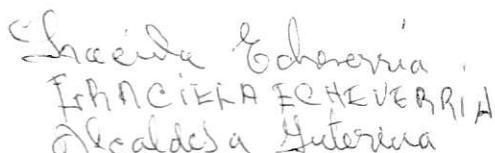 Graciela Echeverria
GRACIELA ECHEVERRIA
Alcaldesa Interina